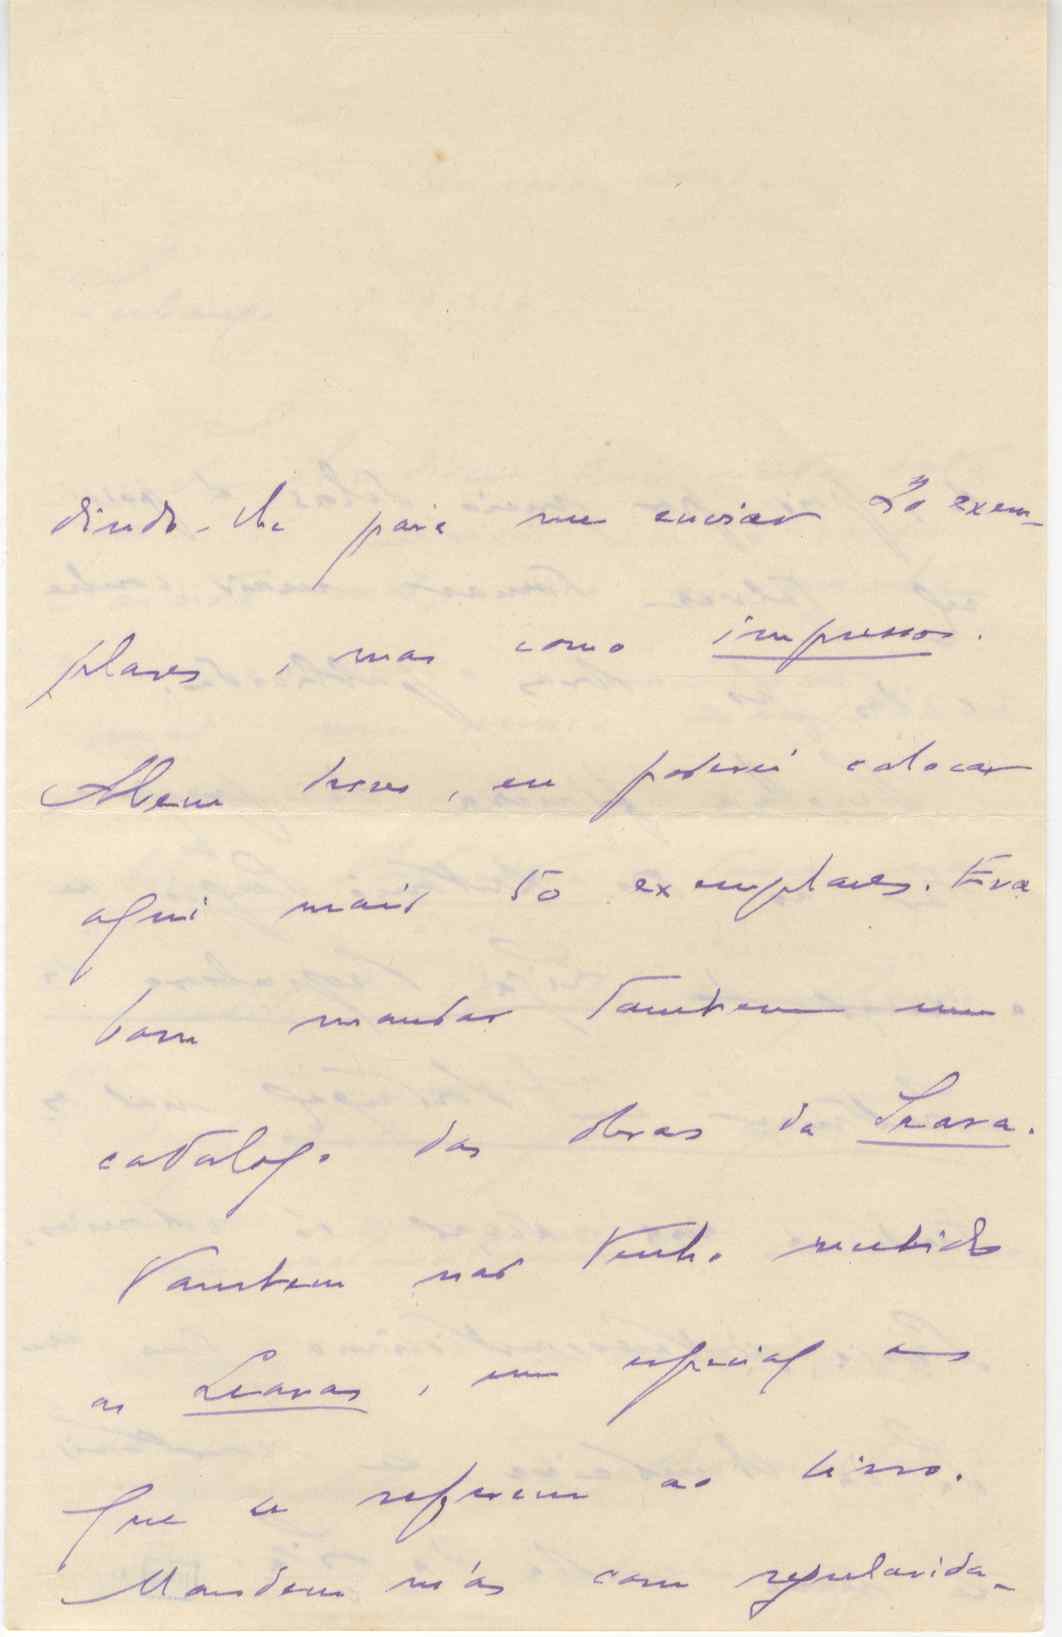 dindo-lhe para me enviar 20 exem-
plares, mas como impressos.
Alem disso, eu poderei colocar
aqui mais 50 exemplares. Era
bom mandar tambem um
catalogo das obras da Seara.
Tambem não tenho recebido
as Searas, em especial as
que se referem ao livro.
Mandem m'as com regularida-